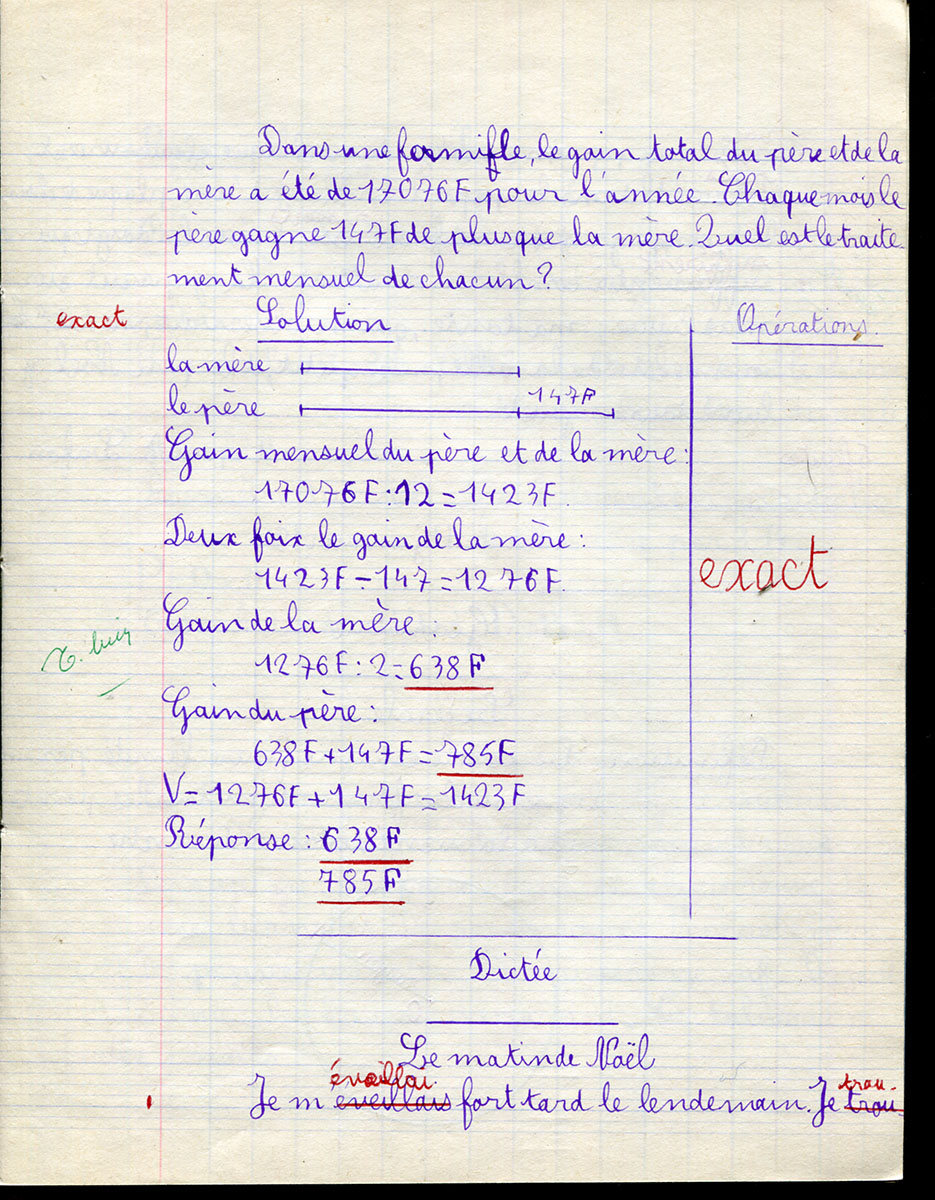 Dans une famille, le gain total du père et de la
mère a été de 17076F pour l'année. Chaque mois le
père gagne 147F de plus que la mère. Quel est le traite-
ment mensuel de chacun?
exact
Solution
Opérations.
la mère
147F
le père
Gain mensuel du père et de la mère:
17076F:12=1423F.
Deux foix le gain de la mère:
1423F-147=1276F.
exact
Gain de la mère:
T. bien
1276F:2=638F
Gain du père:
638F+147F=785F
V=1276F+147F=1423F
Réponse: 638F
785F
Dictée
Le matin de Noël
éveillai trou-
Je m eveillais fort tard le lendemain. Je trou-